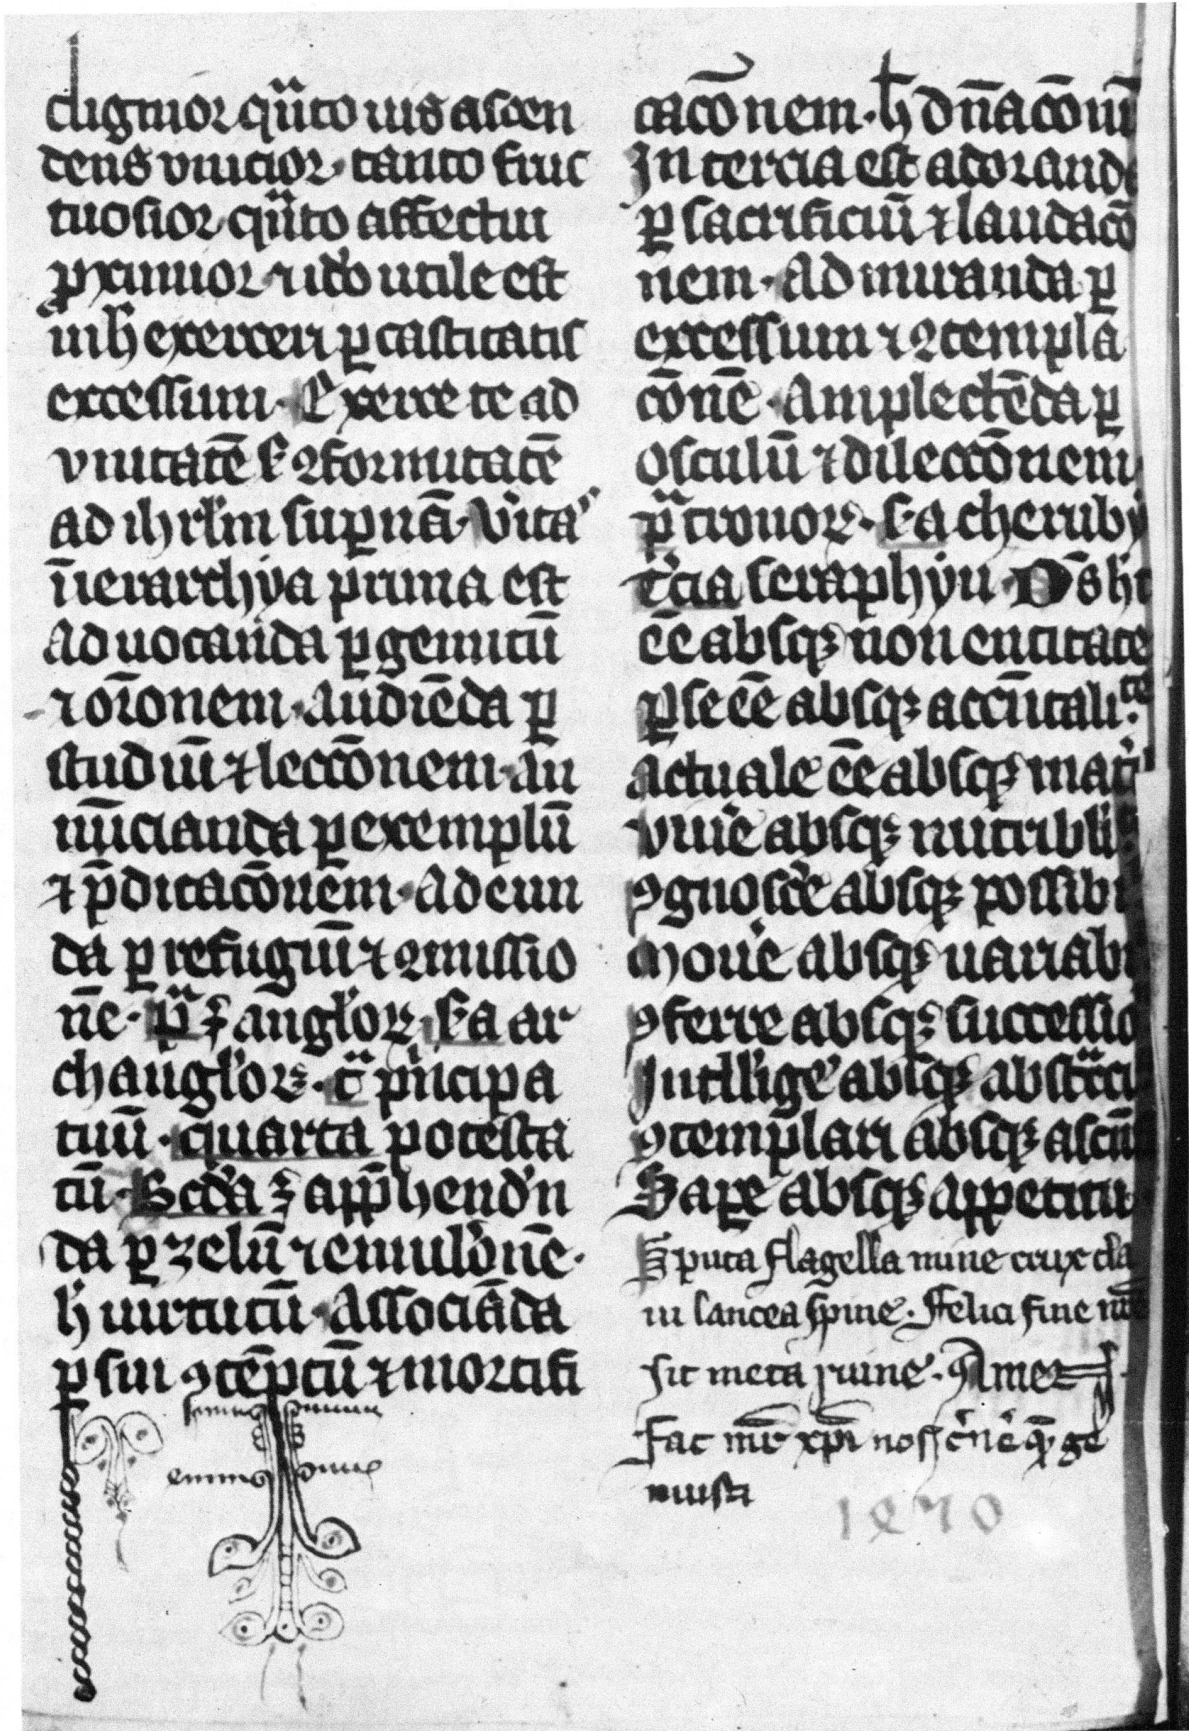 dignior, qͣnto uis ascen
dens vnicior, tanto fruc
tuosior, qͣnto affectui
ꝓximior, ⁊ iđo utile est
in h̄ exerceri ꝑ castitatis
excessum. Exerce te ad
vnitatē s. ꝯformitatē
ad ihrl̄m suꝑnā. Vͥta
ierarchya prima est
aduocanda ꝑ gemitū
⁊ or̄onem. audiēda ꝑ
studiū ⁊ leccōnem. an
nūcianda ꝑ exemplū
⁊ p̄dicacōnem. adeun
da ꝑ refugiū ⁊ ꝯmissio
nē. pͣ angl̓oꝝ. sͣa ar
changl̓oꝝ. tͣ pͥncipa
tuū. quarta potesta
tū. Scd̓a app̄hend̓n
da ꝑ zelū ⁊ emul̓onē.
h̄ uirtutū. associāda
ꝑ sui ꝯtēptū ⁊ mortifi
cacōnem. h̄ dn̄acōnū
In tercia est adorand
ꝑ sacrificiū ⁊ laudacō
nem. admiranda ꝑ
excessum ⁊ ꝯtempla
cōnē. amplectēda ꝑ
osculū ⁊ dileccōnem
pͣ tronoꝝ. sͣa cheruby
t̓cia seraphyn. Ds̄ h̄t
ēē absqꝫ non entitate
ꝑ se ēē absqꝫ accn̄tali.te
actuale ēē absqꝫ matͥ
viu̓e absqꝫ nutribl̓i
ꝯgnosc̓e absqꝫ possibi
mou̓e absqꝫ uariabi
ꝯferre absqꝫ successio
Intllig̓e absqꝫ abstͣcci
ꝯtemplari absqꝫ ascn̄
Saꝑe absqꝫ appetitu.
Sputa flagella mine crux cla
ui lancea spine. Felici fine
sit meta ruine. Amen
Fac xp̄i nos c̓n̓e ge
nuisti
1470